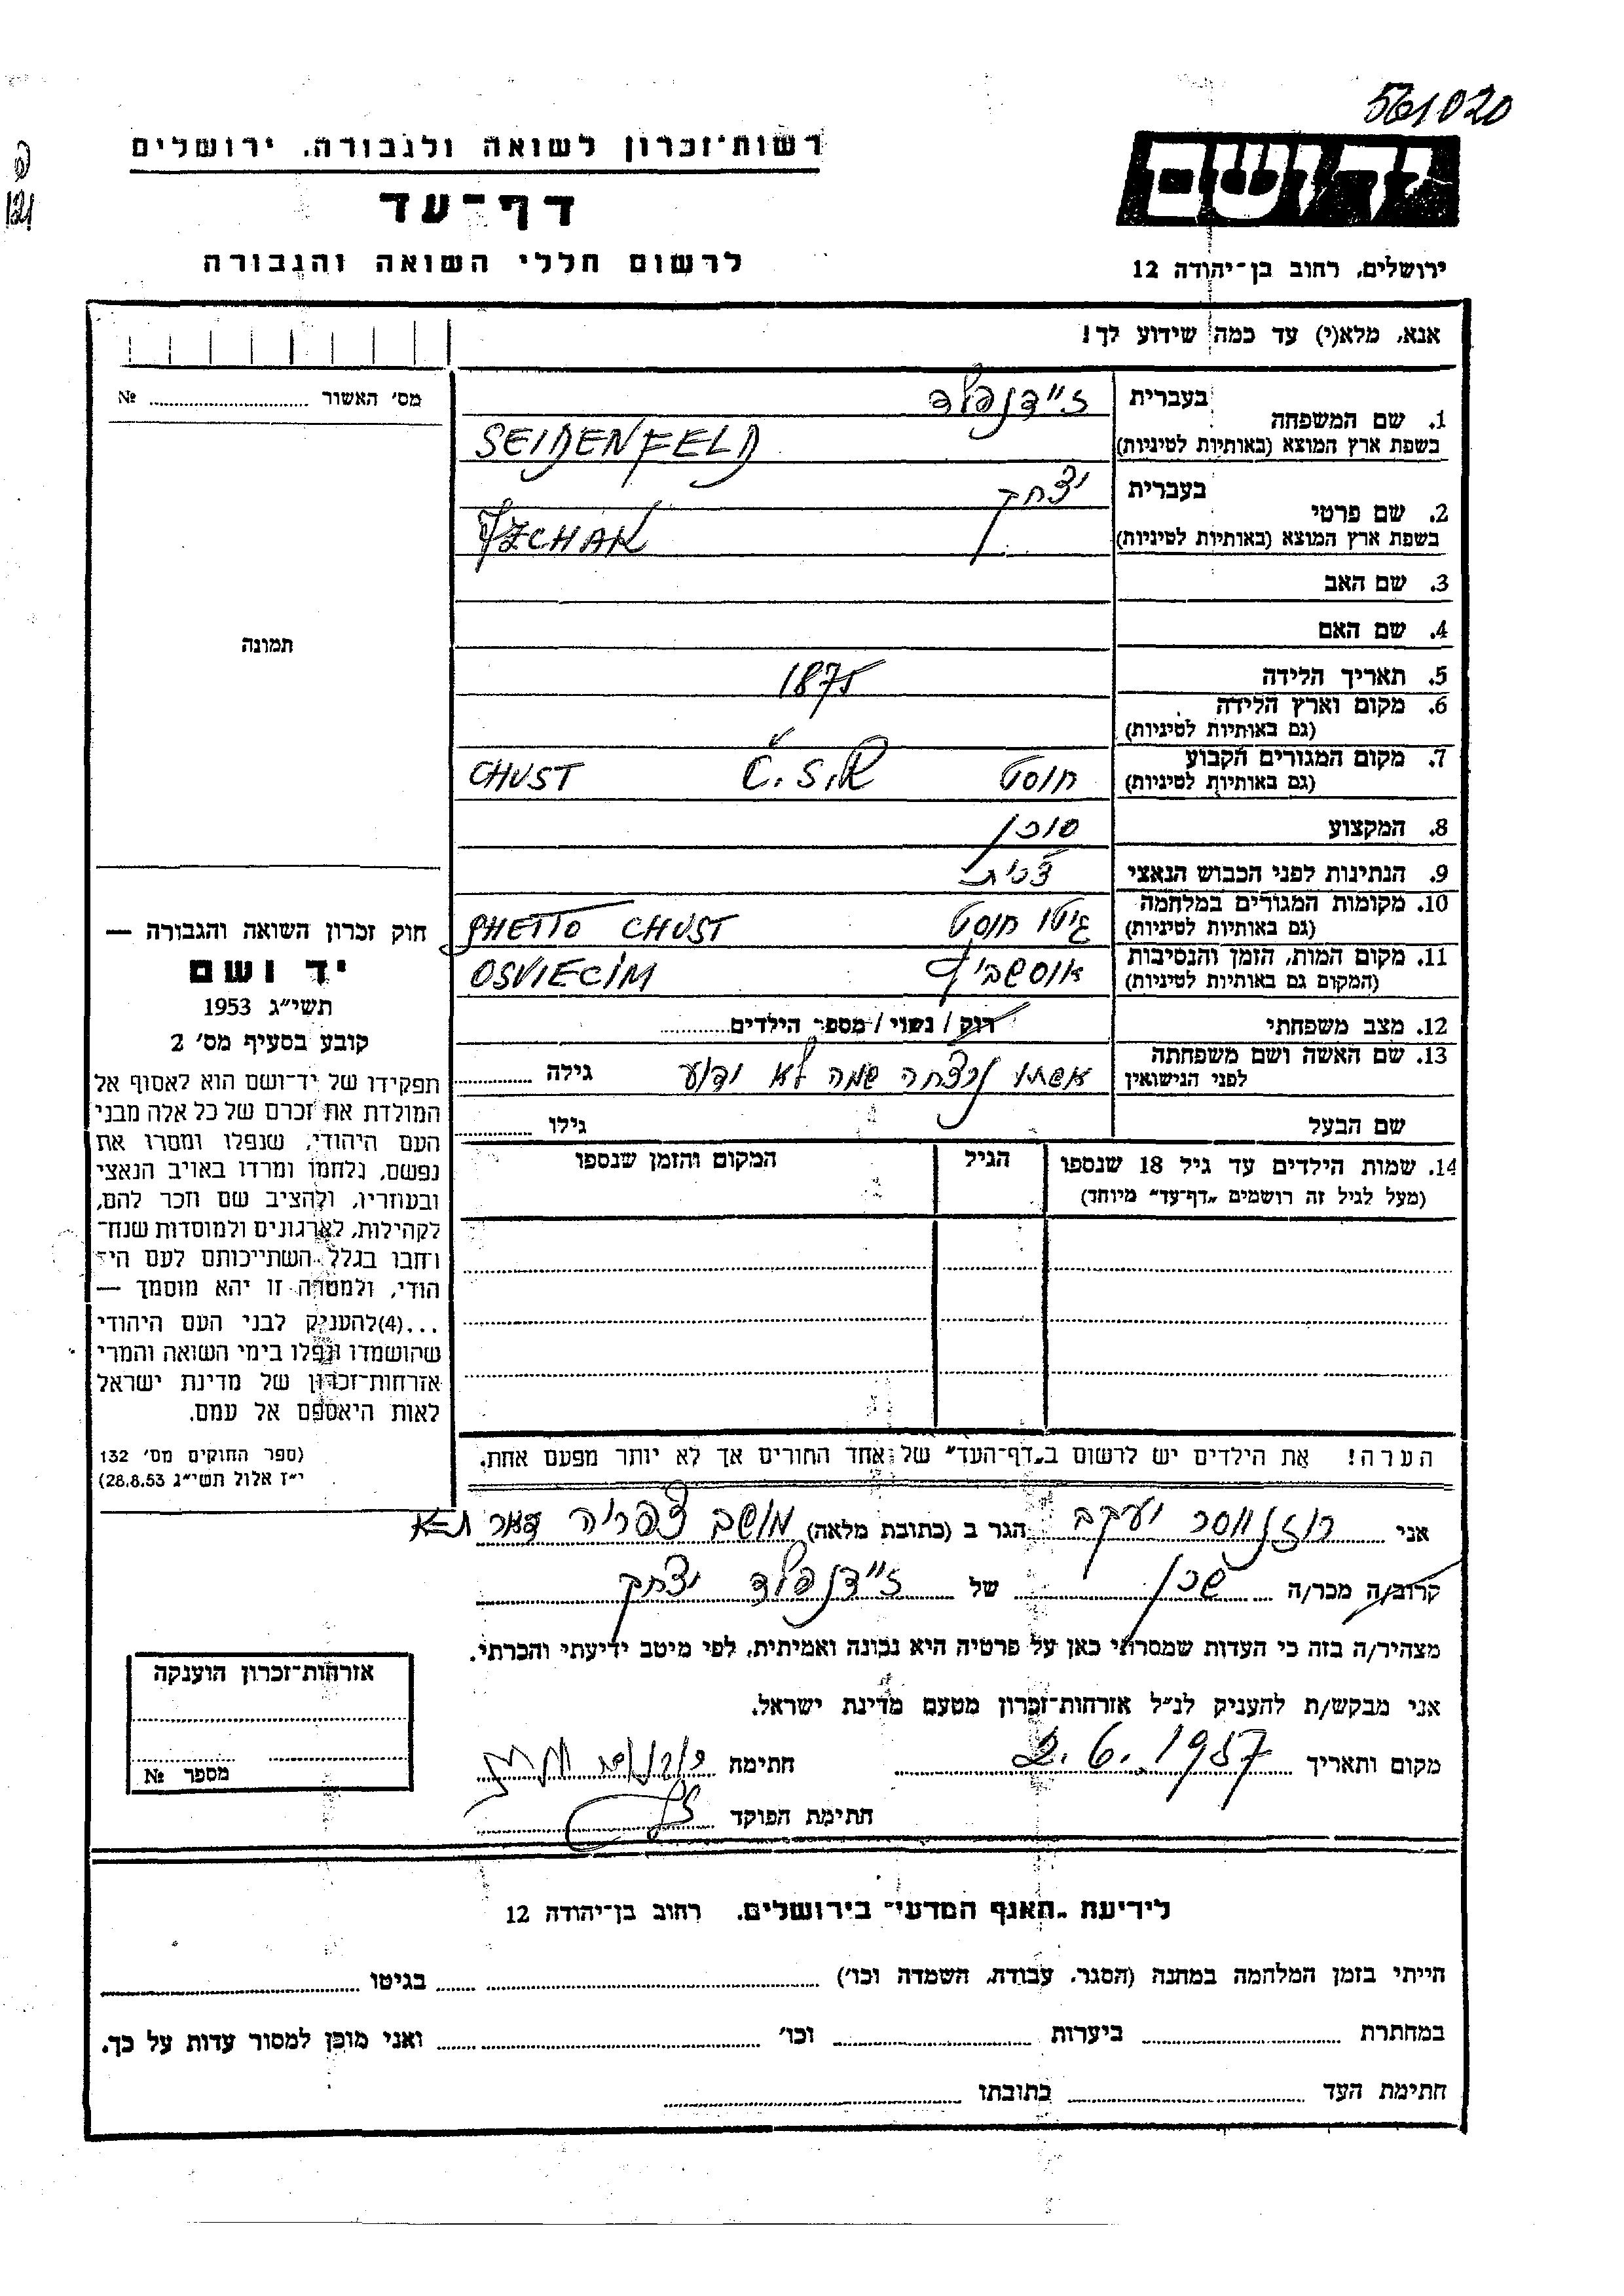 561020
רשות־זכרון לשואה ולגבורה. ירושלים
דף־עד
לרשום חללי השואה והגבורה
יד ושם
ירושלים, רחוב בן־יהודה 12
121
אנא, מלא(י) עד כמה שידוע לך!
מס׳ האשור № 
1. שם המשפחה בעברית זיידנפלד
בשפת ארץ המוצא (באותיות לטיניות) SEIDENFELD
2. שם פרטי בעברית יצחק
בשפת ארץ המוצא (באותיות לטיניות) IZCHAK
3. שם האב
4. שם האם
תמונה
5. תאריך הלידה 1875
6. מקום וארץ הלידה
(גם באותיות לטיניות)
7. מקום המגורים הקבוע חוסט Č.S.R. CHUST
(גם באותיות לטיניות)
8. המקצוע סוכן
9. הנתינות לפני הכבוש הנאצי צכית
10. מקומות המגורים במלחמה גיטו חוסט GHETTO CHUST
(גם באותיות לטיניות)
11. מקום המות, הזמן והנסיבות אוסשביץ OSVIECIM
(המקום גם באותיות לטיניות)
12. מצב משפחתי רוק / נשוי / מספר הילדים
13. שם האשה ושם משפחתה אשתו נרצחה שמה לא ידוע גילה
לפני הנישואין
שם הבעל גילו
14. שמות הילדים עד גיל 18 שנספו הגיל המקום והזמן שנספו
(מעל לגיל זה רושמים „דף־עד״ מיוחד)
חוק זכרון השואה והגבורה —
יד ושם
תשי״ג 1953
קובע בסעיף מס׳ 2
תפקידו של יד־ושם הוא לאסוף אל
המולדת את זכרם של כל אלה מבני
העם היהודי, שנפלו ומסרו את
נפשם, נלחמו ומרדו באויב הנאצי
ובעוזריו, ולהציב שם וזכר להם,
לקהילות, לארגונים ולמוסדות שנח־
רבו בגלל השתייכותם לעם הי־
הודי, ולמטרה זו יהא מוסמך —
...(4)להעניק לבני העם היהודי
שהושמדו ונפלו בימי השואה והמרי
אזרחות־זכרון של מדינת ישראל
לאות היאספם אל עמם.
(ספר החוקים מס׳ 132
י״ז אלול תשי״ג 28.8.53)
הערה! את הילדים יש לרשום ב„דף־העד״ של אחד החורים אך לא יותר מפעם אחת.
אני רוזנווסר יעקב הגר ב (כתובת מלאה) מושב צפריה
קרוב/ה מכר/ה שכן של זיידנפלד יצחק
מצהיר/ה בזה כי העדות שמסרתי כאן על פרטיה היא נכונה ואמיתית, לפי מיטב ידיעתי והכרתי.
אני מבקש/ת להעניק לנ״ל אזרחות־זכרון מטעם מדינת ישראל.
מקום ותאריך 2.6.1957 חתימה
חתימת הפוקד
אזרחות־זכרון הוענקה
מספר №
לידיעת „האגף המדעי״ בירושלים. רחוב בן־יהודה 12
הייתי בזמן המלחמה במחנה (הסגר, עבודת, השמדה וכו׳) בגיטו
במחתרת ביערות וכו׳ ואני מוכן למסור עדות על כך.
חתימת העד כתובתו